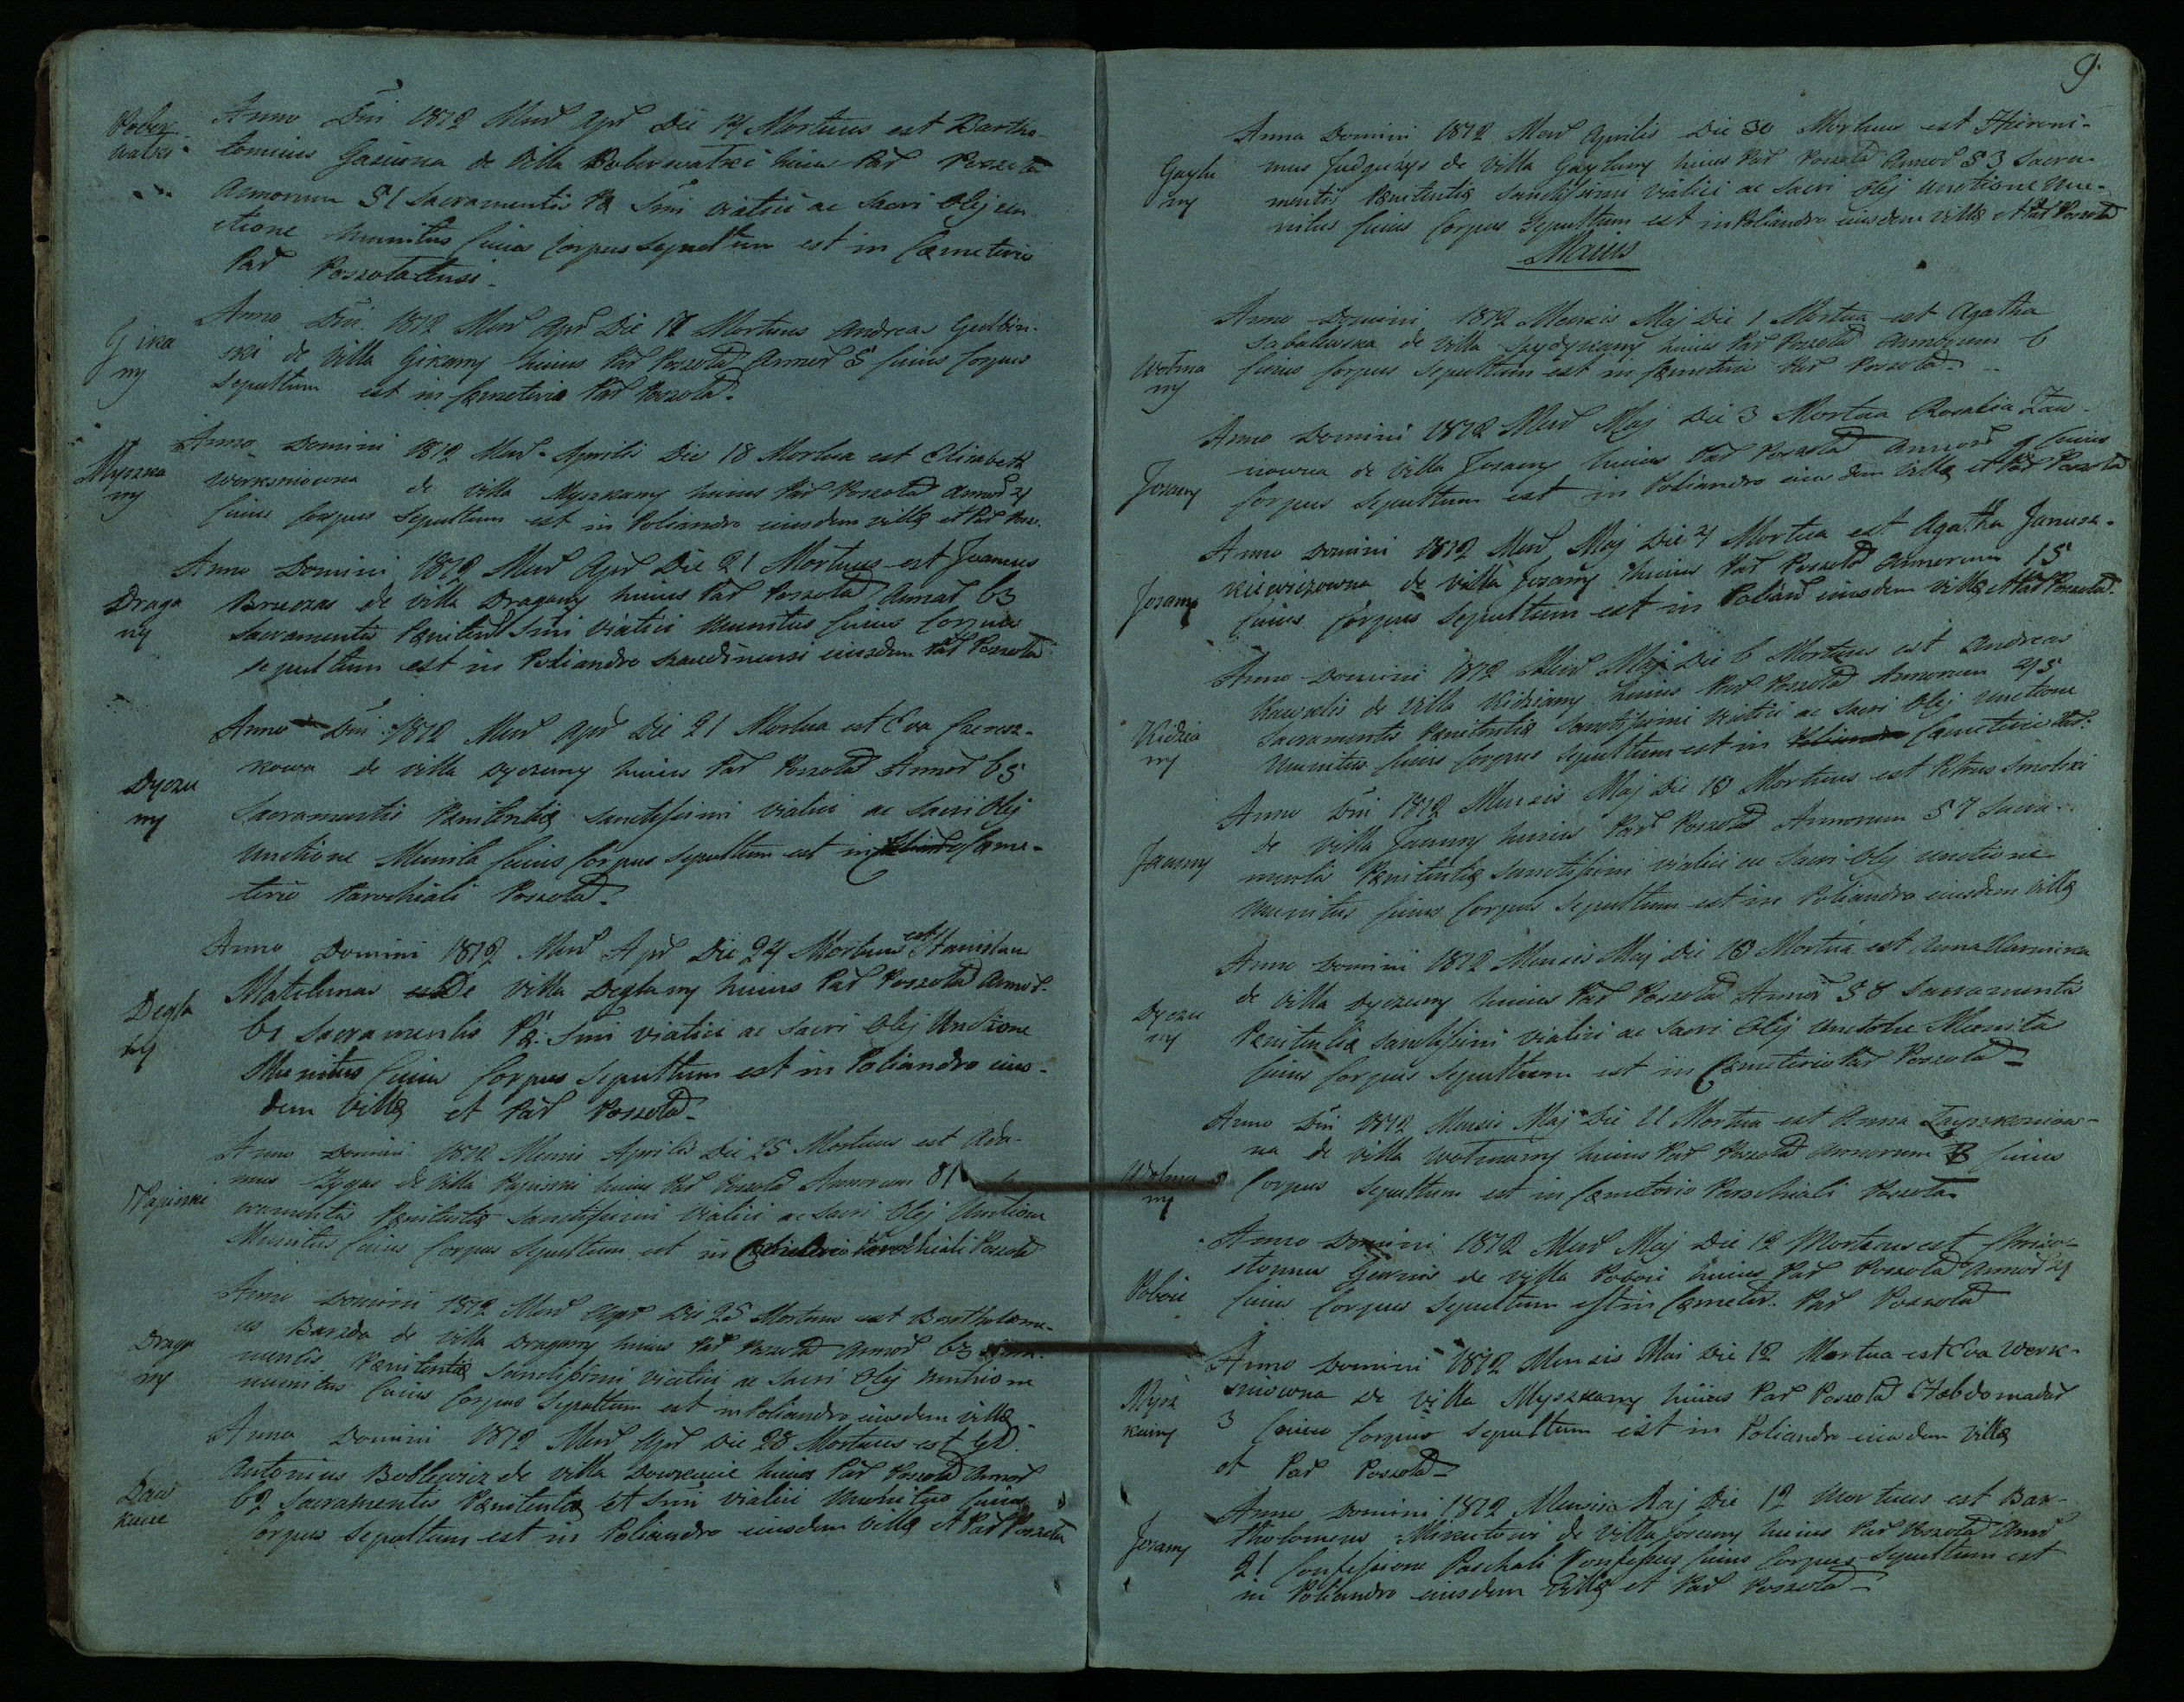 Pober
walki
Anno Dni 1812 Mens Apr Die 14 Mortuus est Bartho-
lomeus Gasiuna de Villa Poberwalki huius Par Poszota
Annorum 51 Sacramentis Pæ Smi viatici ac Sacri Olej un-
ctione Munitus Cuius Corpus Sepultum est in Cæmeterio
Par Poszotatensi.
Gira
ny
Anno Dni 1812 Mens Apr Die 17 Mortuus Andreas Gulbin-
ski de Villa Girkany huius Par Poszotas Annor 5 Cuius Corpus
Sepultum est in Cæmeterio Par Poszotas.
Myszka
ny
Anno Domini 1812 Mens Aprilis Die 18 Mortua est Elisabeth
Werksniowna de Villa Myszkany huius Par Poszotas Annor 4
Cuius Corpus Sepultum est in Poliandro eiusdem Villæ et Par Posz.
Draga
ny
Anno Domini 1812 Mens Apr Die 21 Mortuus est Joannes
Bruszas de Villa Dragany huius Par Poszotas Annor 63
Sacramentis Pæniten Smi Viatici Munitus Cuius Corpus
sepultum est in Poliandro Szaudinensi eiusdem Par Poszotas
Dyczu
ny
Anno Dni 1812 Mens Apr Die 21 Mortua est Eva
kowa de Villa Dyczuny huius Par Poszotas Annor 65
Sacramentis Pænitentiæ Sanctissimi Viatici ac Sacri Olej
Unctione Munita Cuius Corpus Sepultum est in Cæme-
terio Parochiali Poszotas.
Degla
ny
Anno Domini 1812 Mens Apr Die 24 Mortuus est Stanislaus
Matelunas De Villa Deglany huius Par Poszotas Annor.
61 Sacramentis Pæ: Smi Viatici ac Sacri Olej Unctione
Munitus Cuius Corpus Sepultum est in Poliandro eius-
dem Villæ et Par Poszotas
Pajuski
Anno Domini 1812 Mensis Aprilis Die 25 Mortuus est Ada-
mus Zygas de Villa Pajuski huius Par Poszotas Annorum 81
cramentis Pænitentiæ Sanctissimi Viatici ac Sacri Olej Unctione
Munitus Cuius Corpus Sepultum est in Cæmeterio Parochiali Poszota
Draga
ny
Anno Domini 1812 Mens Apr Die 25 Mortuus est Bartholome-
us Barzda de Villa Dragany huius Par Poszotas Annor 63 Sacra-
mentis Pænitentiæ Sanctissimi Viatici ac Sacri Olej Unctione
munitus Cuius Corpus Sepultum est in Poliandro eiusdem Villæ
Dow
kucie
Anno Domini 1812 Mens Apr Die 28 Mortuus est
Antonius Boblewicz de Villa Dowkucie huius Par Poszotas Annor
62 Sacramentis Pænitentiæ et Smi Viatici Munitus Cuius
Corpus Sepultum est in Poliandro eiusdem Villæ et Par Poszota
9.
Gaylu
ny
Anno Domini 1812 Mens Aprilis Die 30 Mortuus est Hieroni-
mus de Villa Gayluny huius Par Poszotas Annor 53 Sacra-
mentis Pænitentiæ Sanctissimi Viatici ac Sacri Olej Unctione Mu-
nitus Cuius Corpus Sepultum est in Poliandro eiusdem Villæ et Par Poszotas
Maius
Wotma
ny
Anno Domini 1812 Mensis Maj Die 1 Mortua est Agatha
Sabalewska de Villa huius Par Poszotas Annorum 6
Cuius Corpus Sepultum est in Cæmeterio Par Poszotas.
Jozany
Anno Domini 1812 Mens Maj Die 3 Mortua Rosalia Zan-
iowna de Villa Jozany huius Par Poszotas Annor 9 Cuius
Corpus Sepultum est in Poliandro eius dem Villæ et Par Poszotas
Jozany
Anno Domini 1812 Mens Maj Die 4 Mortua est Agatha Janusz-
kiewiczowna de Villa Jozany huius Par Poszotas Annorum 15
Cuius Corpus Sepultum est in Polian eiusdem Villæ et Par Poszotas.
Kidzia
ny
Anno Domini 1812 Mens Maj Die 6 Mortuus est Andreas
de Villa Kidziany huius Par Poszotas Annorum 45
Sacramentis Pænitentiæ Sanctissimi Viatici ac Sacri Olej Unctione
Munitus Cuius Corpus Sepultum est in Poliandro Cæmeterio Par.
Jauny
Anno Dni 1812 Mensis Maj Die 10 Mortuus est Petrus Smolski
de Villa Jauny huius Par Poszotas Annorum 57 Sacra-
mentis Pænitentiæ Sanctissimi Viatici ac Sacri Olej unctione
Munitus Cuius Corpus Sepultum est in Poliandro eiusdem Villæ
Dyczu
ny
Anno Domini 1812 Mensis Maj Die 10 Mortua est Anna
de Villa Dyczuny huius Par Poszotas Annor 58 Sacramentis
Pænitentiæ Sanctissimi Viatici ac Sacri Olej Unctione Munita
Cuius Corpus Sepultum est in Cæmeterio Par Poszotas
Wotma
ny
Anno Dni 1812 Mensis Maj Die 11 Mortua est Anna
na de Villa Wotmany huius Par Poszotas Annorum Cuius
Corpus Sepultum est in Cæmeterio Parochiali Poszotas
Poboie
Anno Domini 1812 Mens Maj Die 12 Mortuus est Chrizo-
stomus de Villa Poboie huius Par Poszotas Annor 4
Cuius Corpus Sepultum est in Cæmeter. Par Poszotas
Mysz
kany
Anno Domini 1812 Mensis Mai Die 12 Mortua est Eva Werk-
sniowna De Villa Myszkany huius Par Poszotas Hebdomadar
3 Cuius Corpus Sepultum est in Poliandro eiusdem Villæ
et Par Poszotas
Jozany
Anno Domini 1812 Mensis Maj Die 12 Mortuus est Bar-
tholomeus de Villa Jozany huius Par Poszotas Annor
21 Confessione Paschali Confessus Cuius Corpus Sepultum est
in Poliandro eiusdem Villæ et Par Poszotas